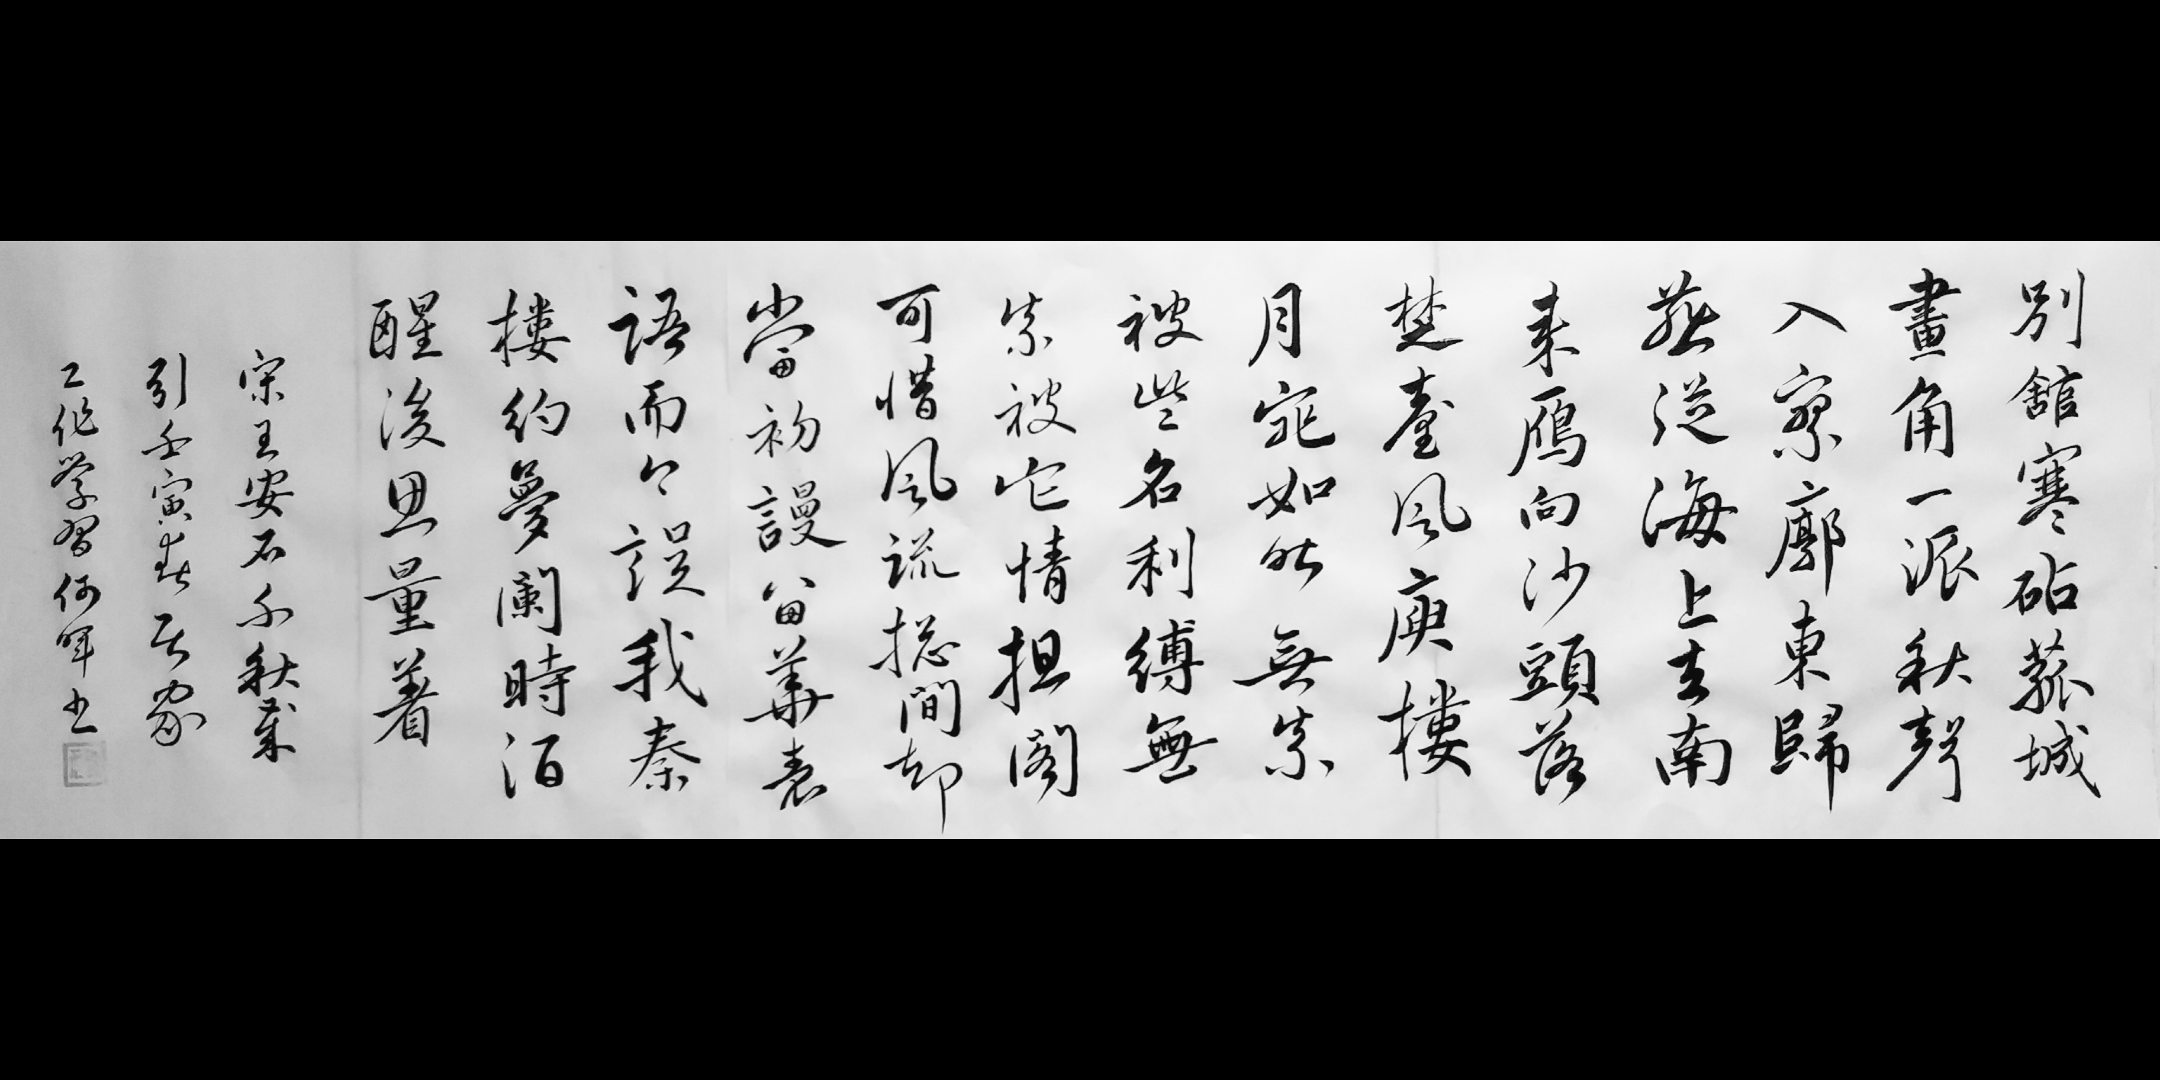 別舘寒砧孤城
畫角一派秋聲
入寥廓東歸
燕從海上去南
来鴈向沙頭落
楚臺風庾樓
月宛如昨無奈
被些名利縛無
奈被它情担閣
可惜風流揔閒却
當初謾留華表
語而今誤我秦
樓約夢闌時酒
醒後思量着
宋王安石千秋歲
引壬寅春居家
工作学習何暉书